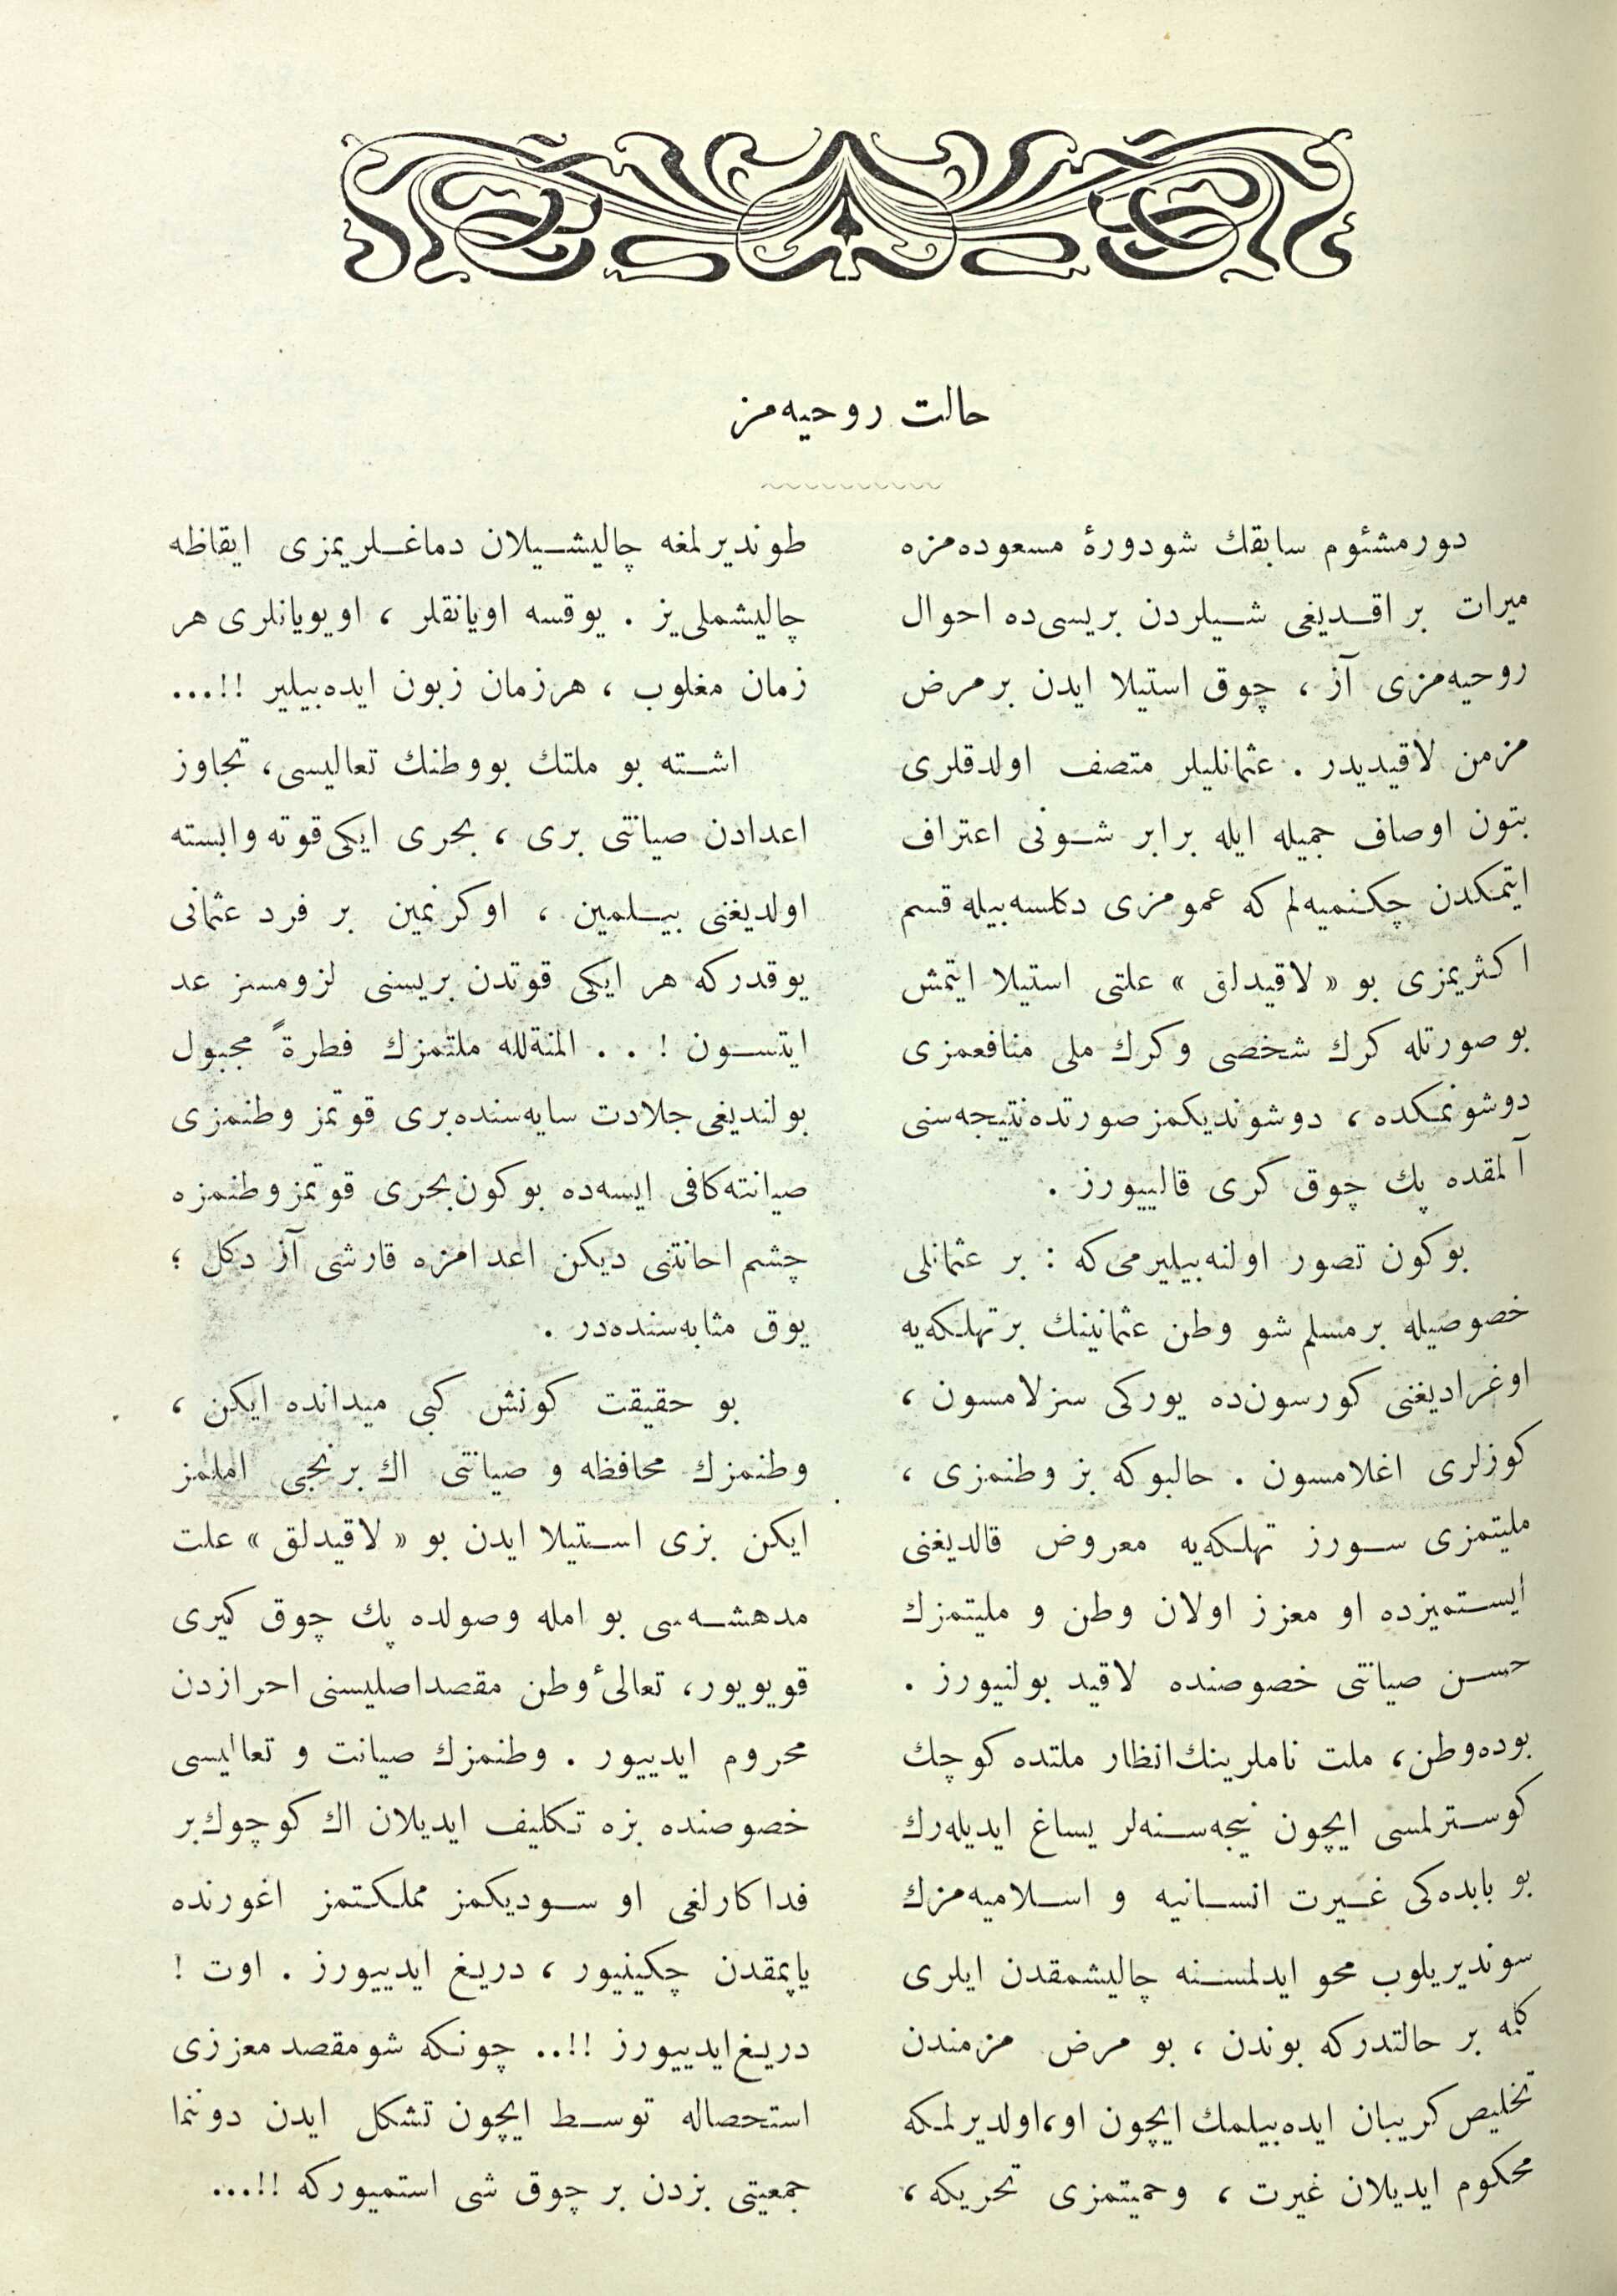 حالت روحیه‌مز
دور مشئوم سابقك شو دورهٔ مسعوده‌مزه
میرات براقدیغی شیلردن بریسی‌ده احوال
روحیه‌مزی آز ، چوق استیلا ایدن بر مرض
مزمن لاقیدیدر . عثمانلیلر متصف اولدقلری
بتون اوصاف جمیله ایله برابر شونی اعتراف
ایتمکدن چکنمیه‌لم که عمومزی دکلسه بیله قسم
اکثریمزی بو « لاقیدلق » علتی استیلا ایتمش
بو صورتله کرك شخصی و کرك ملی منافعمزی
دوشونمکده ، دوشوندیکمز صورتده نتیجه‌سنی
آلمقده پك چوق کری قالییورز .
بوکون تصور اولنه‌بیلیرمی که : بر عثمانلی
خصوصیله بر مسلم شو وطن عثمانینك بر تهلکه‌یه
اوغرادیغنی کورسون‌ده یورکی سزلامسون ،
کوزلری اغلامسون . حالبوکه بز وطنمزی ،
ملیتمزی سورز تهلکه‌یه معروض قالدیغنی
ایستمیزده او معزز اولان وطن و ملیتمزك
حسن صیانتی خصوصنده لاقید بولنیورز .
بوده‌وطن، ملت ناملرینك انظار ملتده کوچك
کوسترلمسی ایچون نیجه‌سنه‌لر یساغ ایدیله‌رك
بو بابده‌کی غیرت انسانیه و اسلامیه‌مزك
سوندیریلوب محو ایدلمسنه چالیشمقدن ایلری
کلمه بر حالتدرکه بوندن ، بو مرض مزمندن
تخلیص کریبان ایده‌بیلمك ایچون او،اولدیرلمکه
محکوم ایدیلان غیرت ، وحمیتمزی تحریکه ،
طوندیرلمغه چالیشیلان دماغلریمزی ایقاظه
چالیشملی‌یز . یوقسه اویانقلر ، اویویانلری هر
زمان مغلوب ، هرزمان زبون ایده‌بیلیر !!...
اشته بو ملتك بووطنك تعالیسی، تجاوز
اعدادن صیانتی بری ، بحری ایکی قوته وابسته
اولدیغنی بیلمین ، اوکرنمین بر فرد عثمانی
یوقدرکه هر ایکی قوتدن بریسنی لزومسز عد
ایتسون ! . . المنة‌لله ملتمزك فطرةً مجبول
بولندیغی جلادت سایه‌سنده بری قوتمز وطنمزی
صیانته کافی ایسه‌ده بوکون بحری قوتمز وطنمزه
چشم احانتنی دیکن اعدامزه قارشی آز دکل ؛
یوق مثابه‌سنده‌در .
بو حقیقت کونش کبی میدانده ایکن ،
وطنمزك محافظه و صیانتی اك برنجی املمز
ایکن بزی استیلا ایدن بو « لاقیدلق » علت
مدهشه‌سی بو امله وصولده پك چوق کیری
قویویور، تعالیٔ وطن مقصداصلیسنی احرازدن
محروم ایدییور . وطنمزك صیانت و تعالیسی
خصوصنده بزه تکلیف ایدیلان اك کوچوك بر
فداکارلغی او سودیکمز مملکتمز اغورنده
یاپمقدن چکینیور ، دریغ ایدییورز . اوت !
دریغ ایدییورز !!.. چونکه شو مقصد معززی
استحصاله توسط ایچون تشکل ایدن دوننما
جمعیتی بزدن بر چوق شی استمیورکه !!...